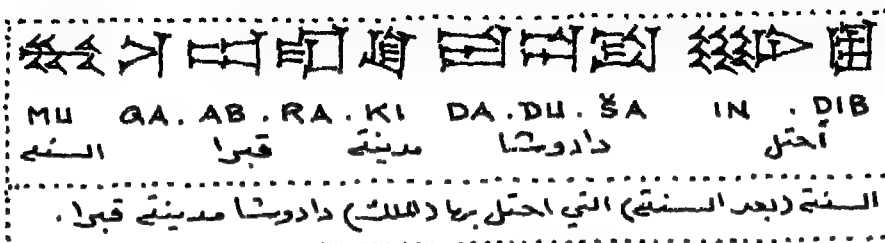 MU QA.AB.RA.KI DA.DU.ŠA IN.DIB
السنة قبرا مدينة دادوشا أحتل
السنة (بعد السنة) التي احتل بها (الملك) دادوشا مدينة قبرا.